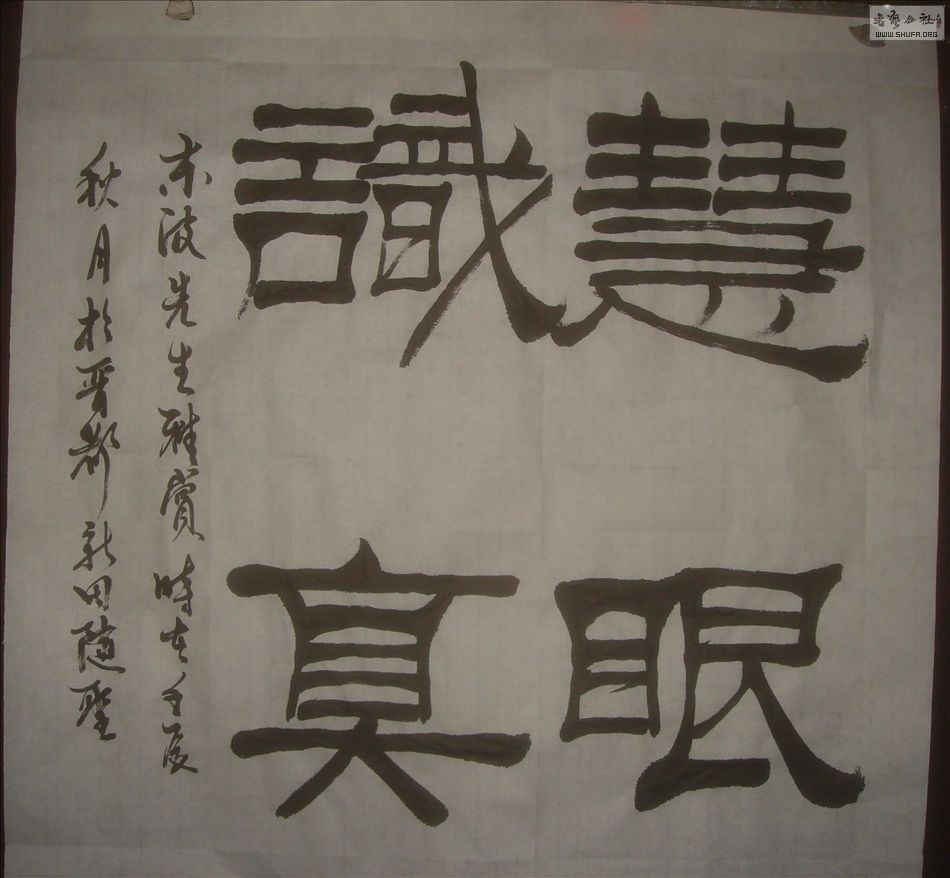 慧眼
識真
东波先生雅赏時在壬辰
秋月於晋都新田随聖
书艺公社
WWW.SHUFA.ORG